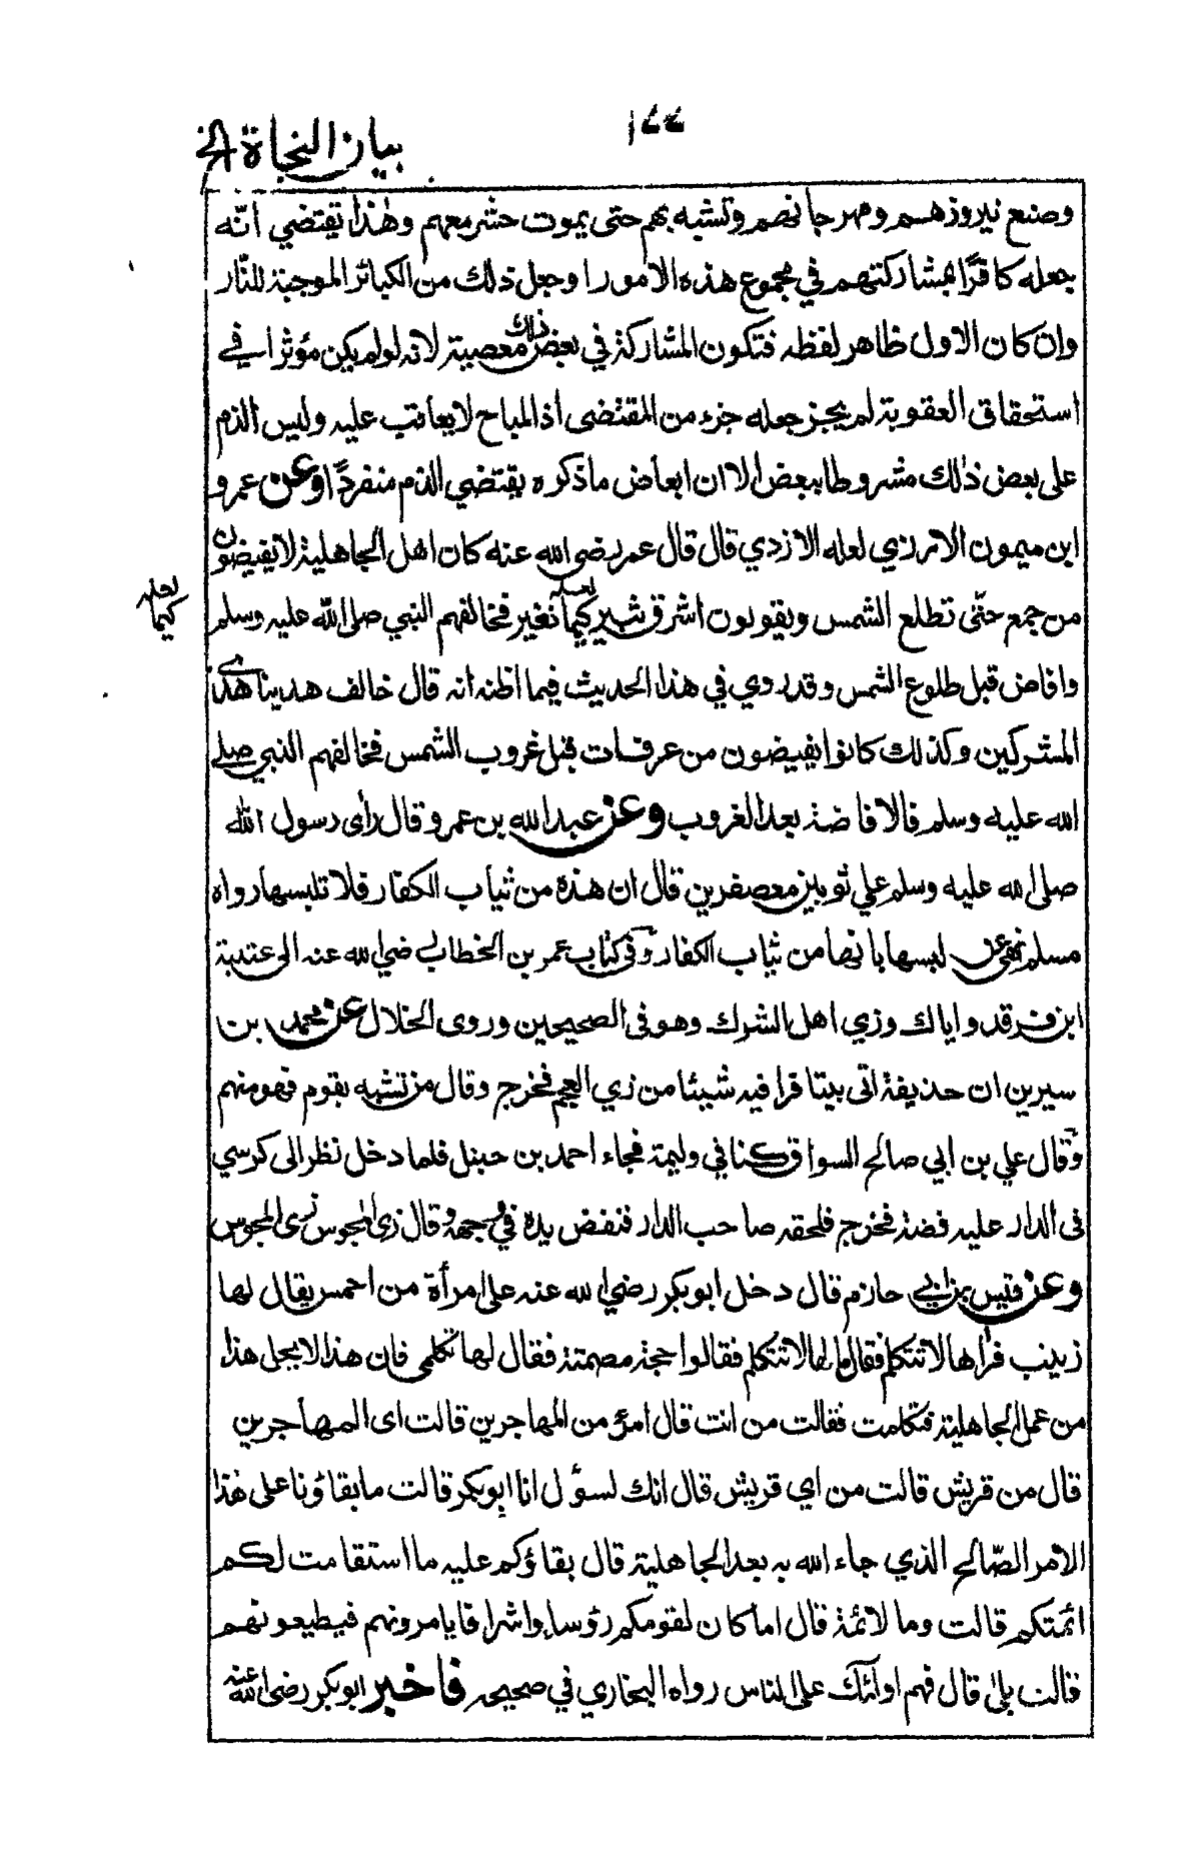 ١٧٧
بيان النجاة الخ
وصنع نيروزهم ومهرجانهم وتشبه بهم حتى يموت حشر معهم وهذا يقتضي انّه
جعله كافرًا بمشاركتهم في مجموع هذه الامور او جعل ذلك من الكبائر الموجبة للنّار
وان كان الاول ظاهر لفظه فتكون المشاركة في بعض ذلك معصية لانه لو لم يكن مؤثرا في
استحقاق العقوبة لم يجز جعله جزء من المقتضى اذ المباح لا يعاقب عليه وليس الذم
على بعض ذلك مشروطا ببعض الا ان ابعاض ما ذكره يقتضي الذم منفردًا وعن عمرو
ابن ميمون الارزي لعله الازدي قال قال عمر رضي الله عنه كان اهل الجاهلية لا يفيضون
من جمع حتّى تطلع الشمس ويقولون اشرق ثبير كيما نغير فخالفهم النبي صلى الله عليه وسلم
لعله
كيما
وافاض قبل طلوع الشمس وقد روي في هذا الحديث فيما اظنه انه قال خالف هدينا هدي
المشركين وكذلك كانوا يفيضون من عرفات قبل غروب الشمس فخالفهم النبي صلى
الله عليه وسلم فالافاضة بعد الغروب وعن عبد الله بن عمرو قال رأى رسول الله
صلى الله عليه وسلم علي ثوبين معصفرين قال ان هذه من ثياب الكفار فلا تلبسها رواه
مسلم نهى عن لبسها بانها من ثياب الكفار وفى كتاب عمر بن الخطاب رضي الله عنه الى عتبة
ابن فرقد واياك وزي اهل الشرك وهو فى الصحيحين وروى الخلال عن محمد بن
سيرين ان حذيفة اتى بيتا فرا فيه شيئا من زي العجم فخرج وقال من تشبه بقوم فهو منهم
وقال علي بن ابي صالح السواق كنا في وليمة فجاء احمد بن حنبل فلما دخل نظر الى كرسي
فى الدار عليه فضة فخرج فلحقه صاحب الدار فنفض يده في وجهه وقال زى المجوس زى المجوس
وعن قيس بن ابي حازم قال دخل ابو بكر رضي الله عنه على امرأة من احمس يقال لها
زينب فرأها لا تتكلم فقال ما لها لا تتكلم فقالوا حجة مصمتة فقال لها تكلمي فان هذا لا يحل هذا
من عمل الجاهلية فتكلمت فقالت من انت قال امرؤ من المهاجرين قالت اى المهاجرين
قال من قريش قالت من اي قريش قال انك لسؤل انا ابو بكر قالت ما بقاؤنا على هذا
الامر الصّالح الذي جاء الله به بعد الجاهلية قال بقاؤكم عليه ما استقامت لكم
ائمتكم قالت وما لائمة قال اما كان لقومكم رؤساء واشراف يامرونهم فيطيعونهم
قالت بلى قال فهم اولئك على الناس رواه البخاري في صحيحه فاخبر ابو بكر رضى الله عنه